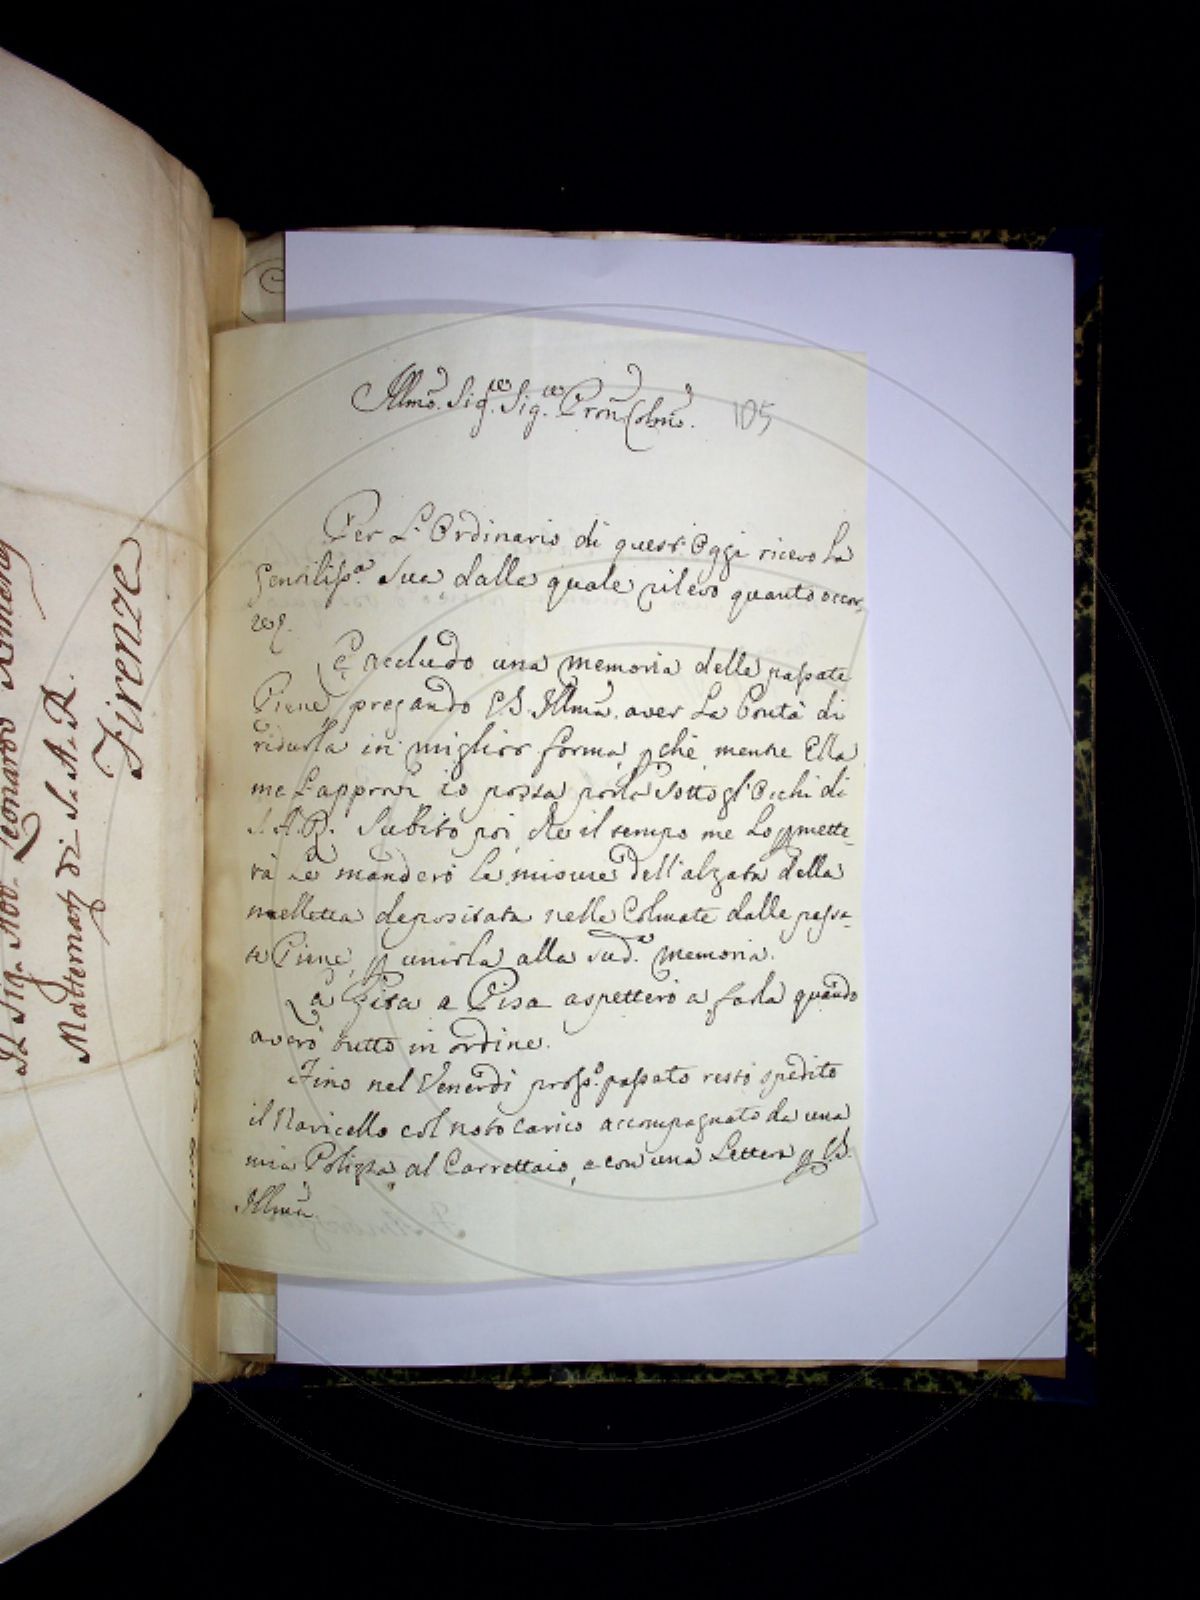 Illmo. Sig.re Sig.re Pron Colmo.
105
Per L'Ordinario di quest'Oggi ricevo La
Gentiliss.a Sua dalla quale rilevo quanto occor-
re
E accludo una memoria delle passate
Piene pregando V.S. Illma. aver La bontà di
ridurla in miglior forma, pchè mentre Ella
me L'approvi io possa porla sotto gl'Occhi di
S.A.R. Subito poi che il tempo me Lo pmette-
rà Le manderò le misure dell'alzata della
melletta depositata nelle Colmate dalle passa-
te Piene, p unirla alla sud.a memoria.
La Gita a Pisa aspetterò a farla quando
averò tutto in ordine.
Fino nel Venerdì pross.o passato restò spedito
il Navicello col noto carico accompagnato da una
mia Polizza al Carrettaio, e con una Lettera p V.S.
Illma.
Sig. Leonardo Ximenes
Mattematico di S. A. R.
Firenze